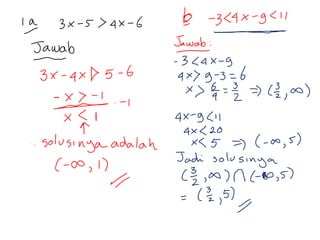 1a 3x-5 > 4x-6
Jawab
3x-4x > 5-6
-x > -1 . -1
x < 1
↑
solusinya adalah
(-∞, 1)
b -3<4x-9<11
Jawab:
-3 < 4x-9
4x > 9-3 = 6
x > 6/4 = 3/2 ⇒ (3/2, ∞)
4x-9<11
4x<20
x<5 ⇒ (-∞, 5)
Jadi solusinya
(3/2, ∞) ∩ (-∞, 5)
= (3/2, 5)